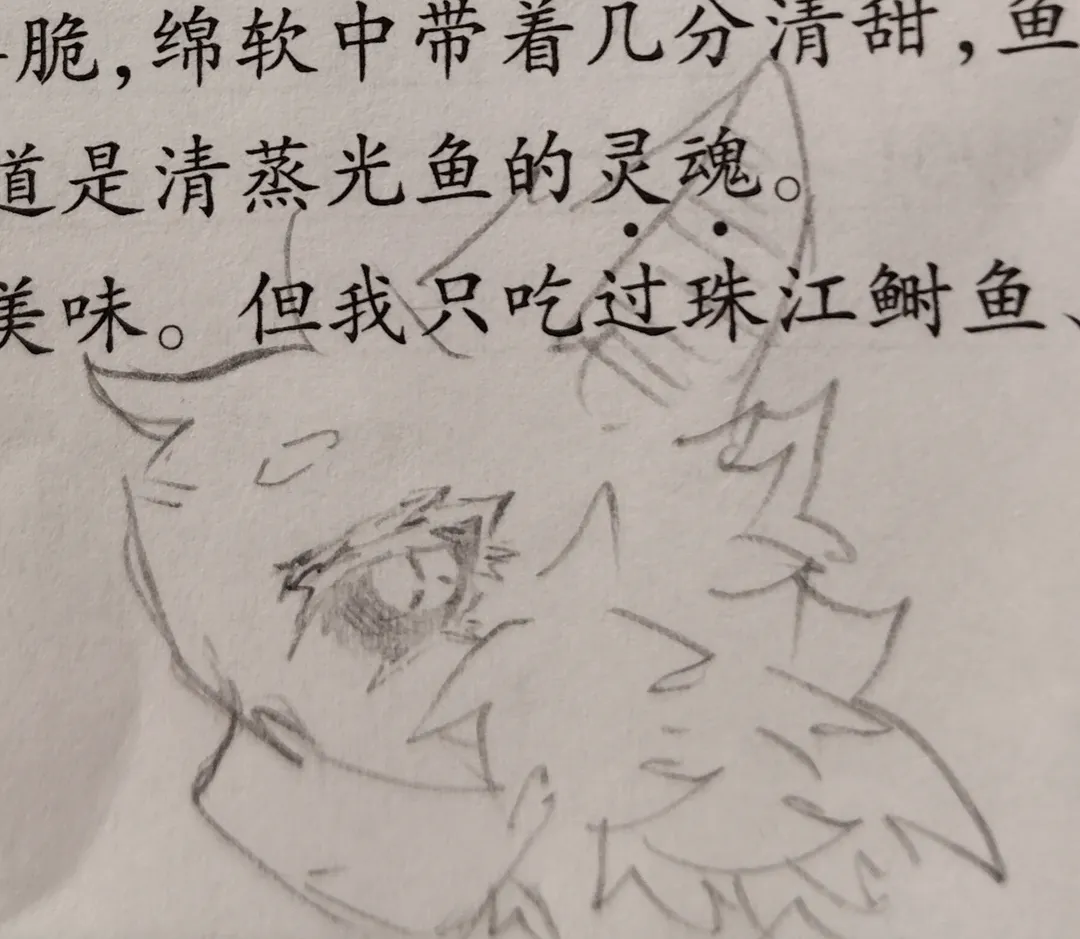 脆，绵软中带着几分清甜，鱼
道是清蒸光鱼的灵魂。
美味。但我只吃过珠江鲥鱼、